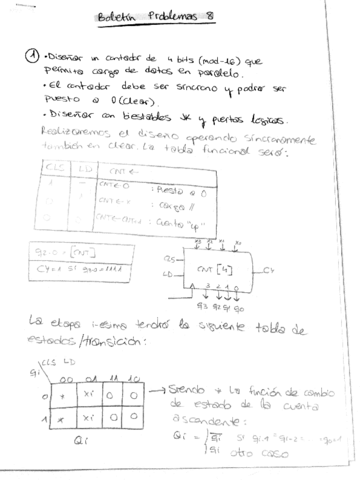 Boletín Problemas 8
① • Diseñar un contador de 4 bits (mod-16) que
permita carga de datos en paralelo.
• El contador debe ser síncrono y podrá ser
puesto a 0 (clear).
• Diseñar con biestables JK y puertas lógicas.
Realizaremos el diseño operando síncronamente
también en clear. La tabla funcional será:
CLS LD CNT←
1 — CNT←0 : Puesta a 0
0 CNT← : carga //
0 : Cuenta "up"
q3-0 = [CNT]
CY=1 si
x3 x2 x1 x0
CLS
LD
CNT [4]
CY
3 2 1 0
q3 q2 q1 q0
La etapa i-esma tendrá la siguiente tabla de
estados/transición:
CLS LD
qi 00 01 11 10
0 * xi 0 0
1 * xi 0 0
Qi
→ Siendo * la función de cambio
de estado de la cuenta
ascendente:
Qi = { qi si
qi otro caso